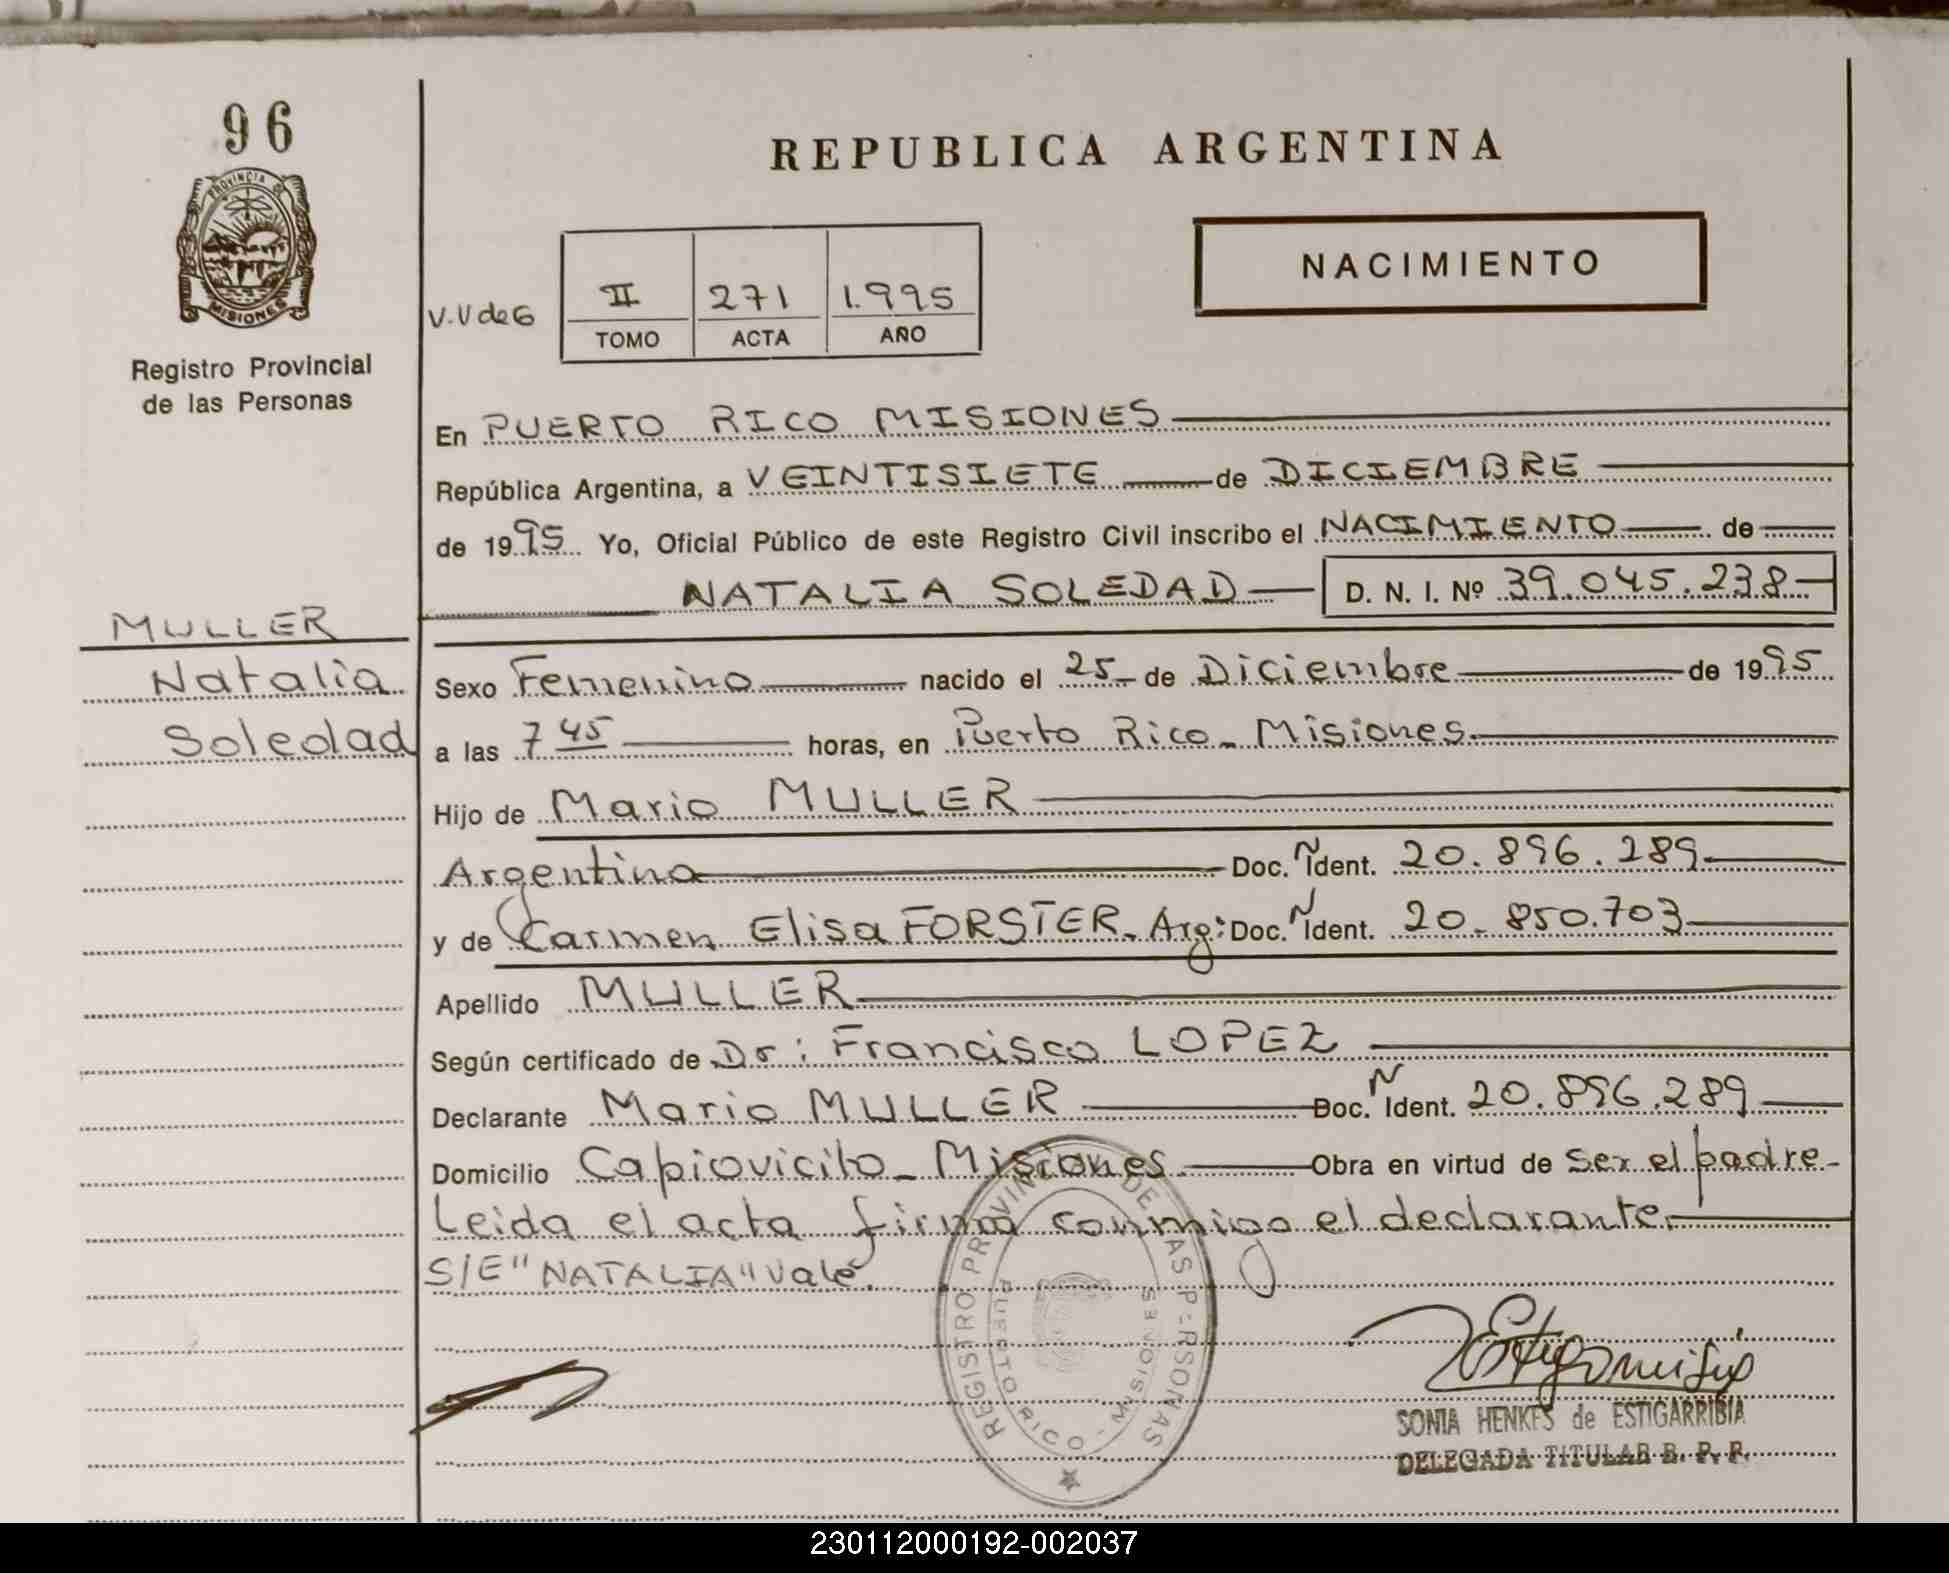 96
REPUBLICA ARGENTINA
PROVINCIA DE
MISIONES
Registro Provincial
de las Personas
NACIMIENTO
V.V de G
II 271 1.995
TOMO ACTA AÑO
En PUERTO RICO MISIONES
República Argentina, a VEINTISIETE de DICIEMBRE
de 1995 Yo, Oficial Público de este Registro Civil inscribo el NACIMIENTO de
NATALIA SOLEDAD D. N. I. Nº 39.045.238
MULLER
Natalia
Soledad
Sexo Femenino nacido el 25 de Diciembre de 1995
a las 7 45 horas, en Puerto Rico - Misiones
Hijo de Mario MULLER
Argentino Doc. N Ident. 20.896.289
y de Carmen Elisa FORSTER. Arg: Doc. N Ident. 20.850.703
Apellido MULLER
Según certificado de Dr: Francisco LOPEZ
Declarante Mario MULLER Doc. N Ident. 20.896.289
Domicilio Capiovicito - Misiones Obra en virtud de ser el padre.
Leida el acta firma conmigo el declarante.
S/E "NATALIA" Vale.
REGISTRO PROVINCIAL DE LAS PERSONAS
PUERTO RICO - MISIONES
SONIA HENKES de ESTIGARRIBIA
DELEGADA TITULAR R. P. P.
230112000192-002037